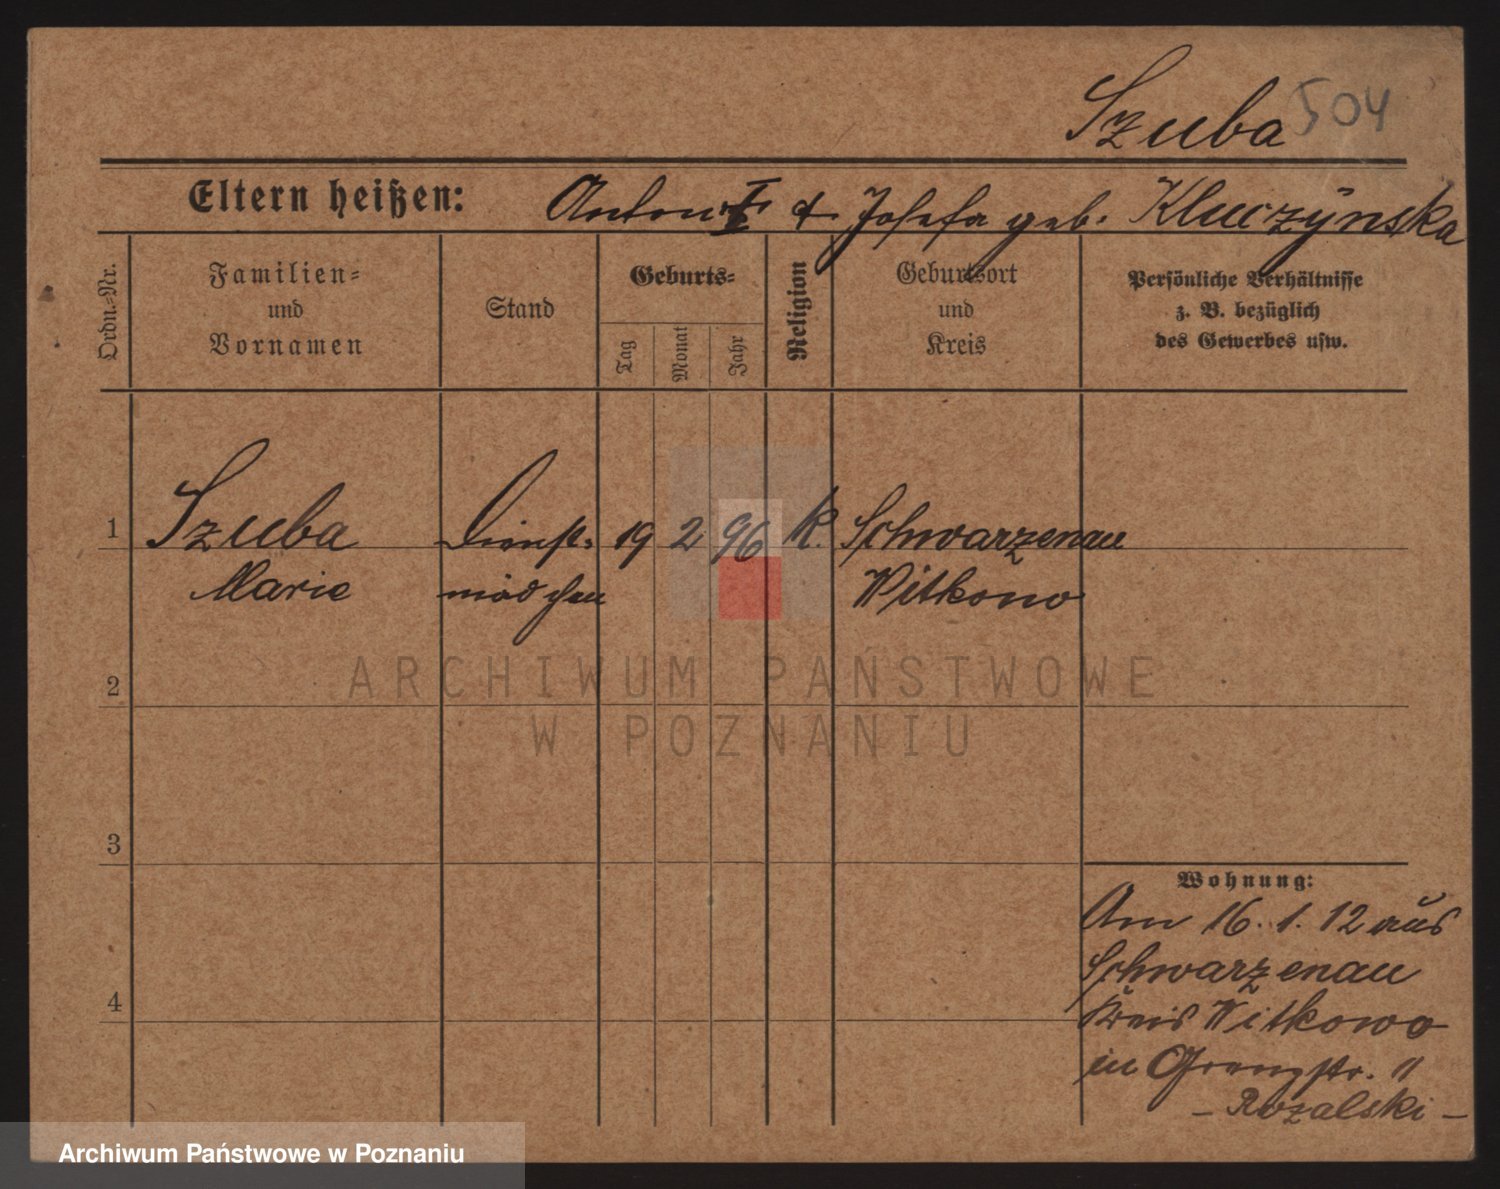 Szuba 504
Eltern heißen: Anton I & Josefa geb. Kluczýnska
Ordn.-Nr.
Familien-
und
Vornamen
Stand
Geburts-
Tag
Monat
Jahr
Religion
Geburtsort
und
Kreis
Persönliche Verhältnisse
z. B. bezüglich
des Gewerbes usw.
1 Szuba Dienst- 19 2 96 K. Schwarzenau
Marie mädchen Witkowo
2
ARCHIWUM PAŃSTWOWE
W POZNANIU
3
Wohnung:
Am 16. 1. 12 aus
Schwarzenau
4
Kreis Witkowo
in Grenzstr. 11
- Rozalski -
Archiwum Państwowe w Poznaniu